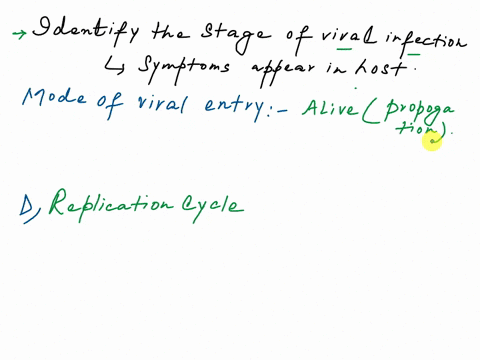 → Identify the stage of viral infection
↳ Symptoms appear in host.
Mode of viral entry:- Alive (propoga
tion).
D, Replication Cycle